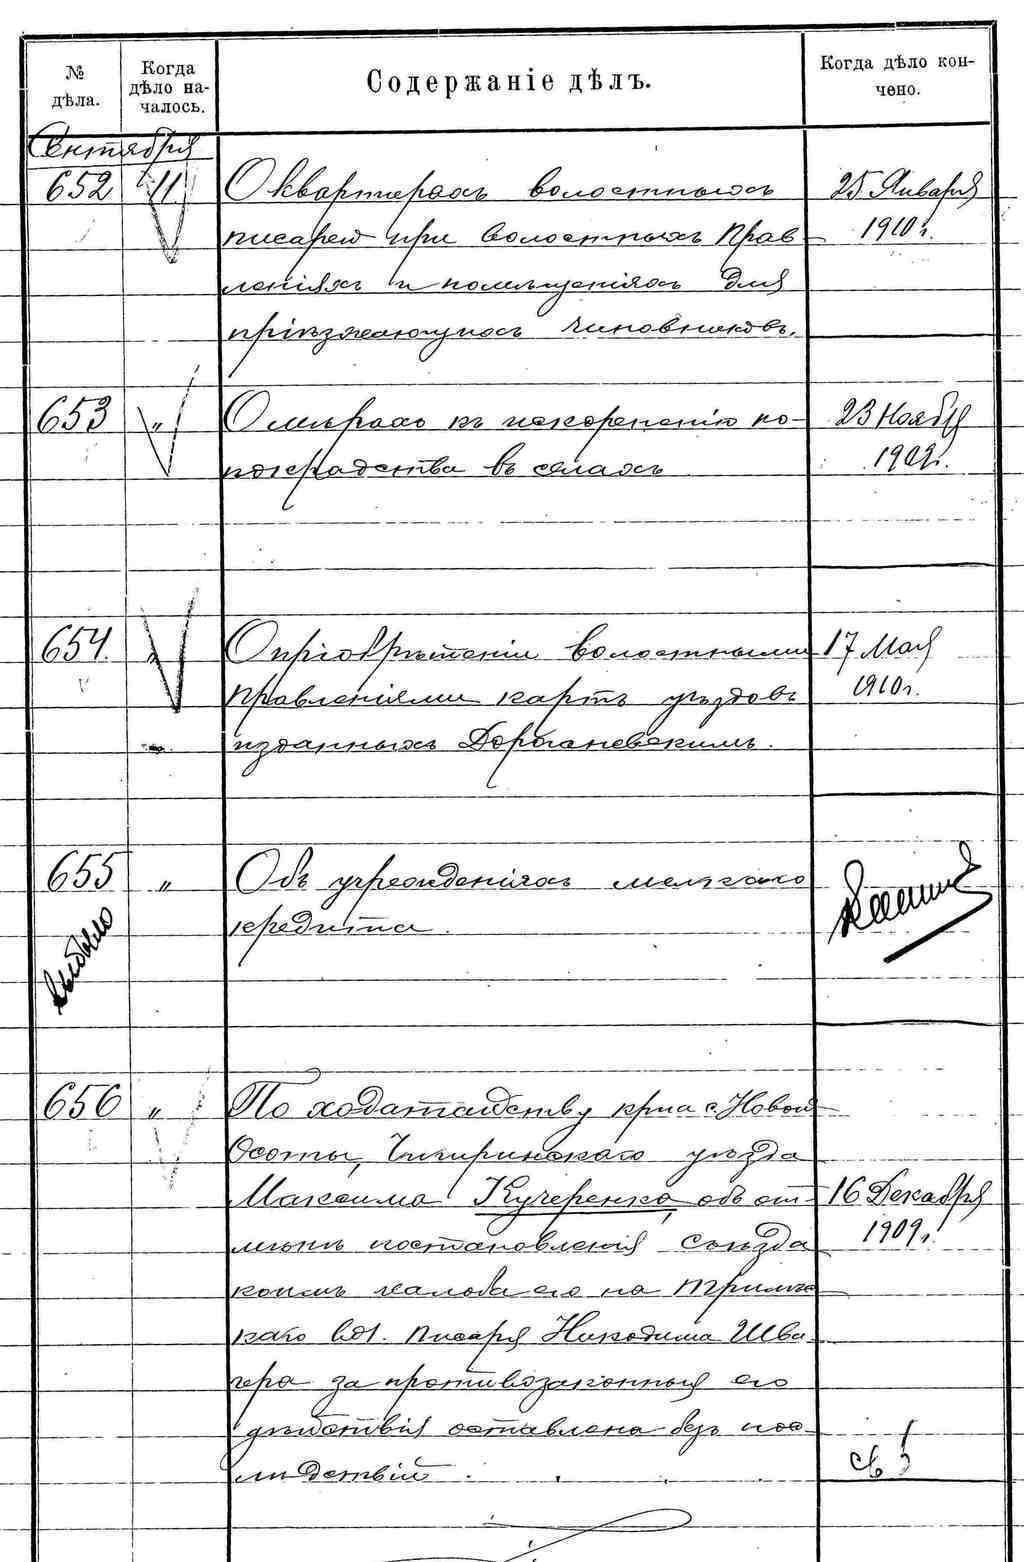 № дѣла.
Когда дѣло началось.
Содержаніе дѣлъ.
Когда дѣло кончено.
Сентября
652 11 О квартирахъ волостныхъ 25 Января
писарей при волостныхъ прав- 1910 г.
леніяхъ и помѣщеніяхъ для
пріѣзжающихъ чиновниковъ.
653 " О мѣрахъ къ искорененію ко- 23 Ноября
нокрадства въ селахъ 1909 г.
654. " О пріобрѣтеніи волостными 17 Мая
правленіями картъ уѣздовъ 1910 г.
изданныхъ
655 " Объ учрежденіяхъ мелкаго
кредита.
выбыло
656 " По ходатайству кр-на с. Новой
Осоты, Чигиринскаго уѣзда
Максима Кучеренко, объ от- 16 Декабря
мѣнѣ постановленія съѣзда 1909 г.
коимъ жалоба его на
каго вол. писаря Никодима Шва-
чера за противозаконныя его
дѣйствія оставлена безъ пос-
лѣдствій.
св